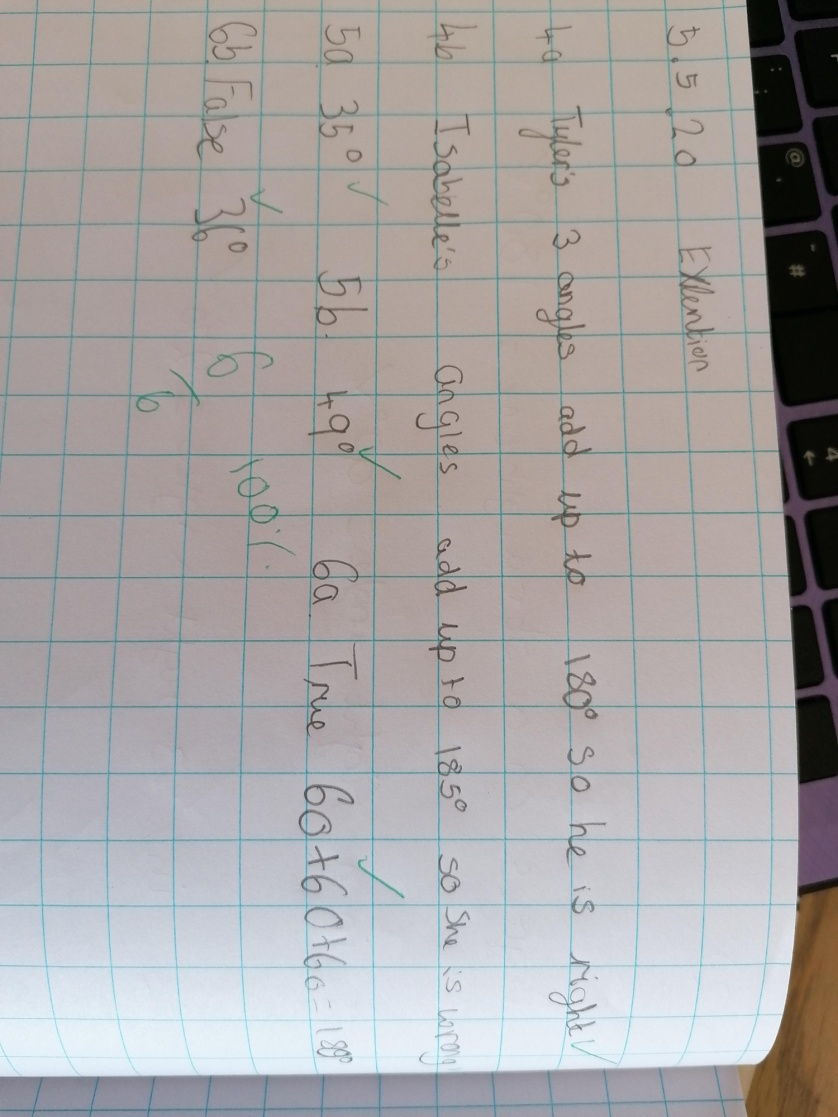 5.5.20 Extention
4a Tyler's 3 angles add up to 180° so he is right ✓
4b Isabelle's angles add up to 185° so she is wrong
5a. 35° ✓ 5b. 49° ✓ 6a. True 60+60+60=180° ✓
6b. False 36° ✓
6/6 100%
@
#
4